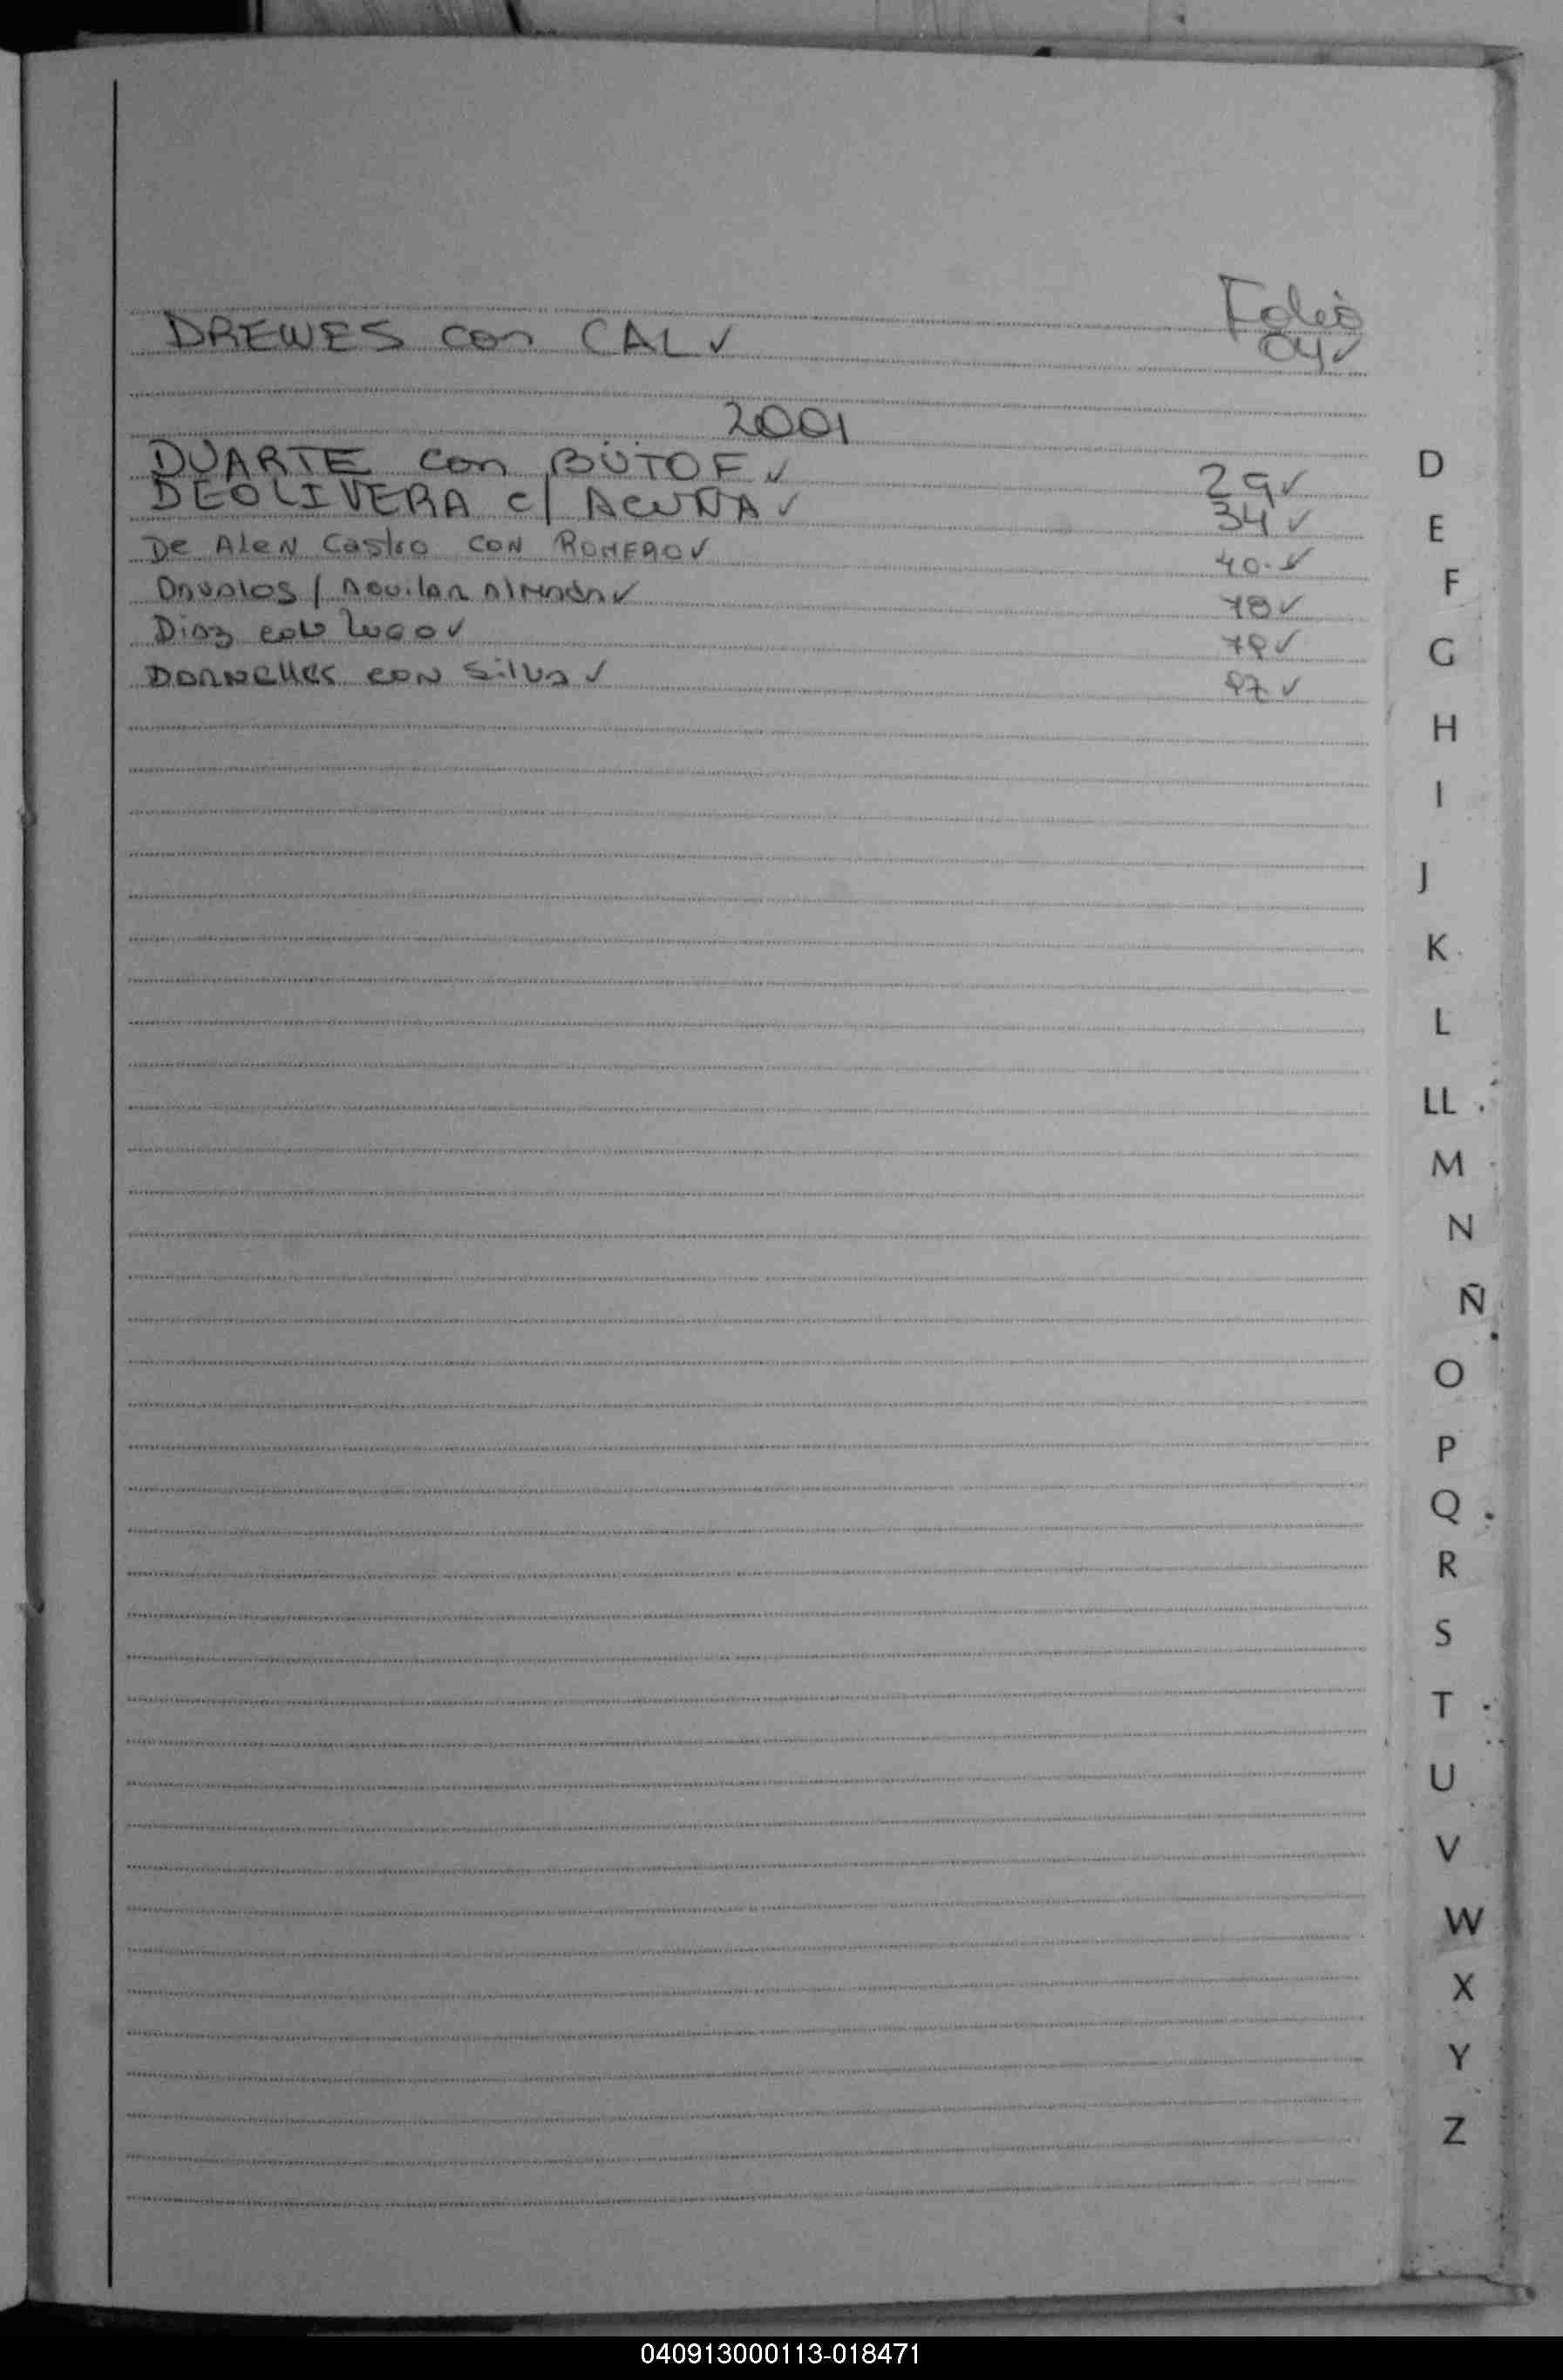 Folio
DREWES con CAL ✓ 04 ✓
2001
DUARTE con BÜTOF ✓ 29 ✓
DEOLIVERA c/ ACUÑA ✓ 34 ✓
De Alen Castro CON ROMERO ✓ 40. ✓
Davalos / Aguilar ✓ 78 ✓
Diaz con Lugo ✓ 79 ✓
Dornelles con Silva ✓ 97 ✓
D
E
F
G
H
I
J
K
L
LL
M
N
Ñ
O
P
Q
R
S
T
U
V
W
X
Y
Z
040913000113-018471